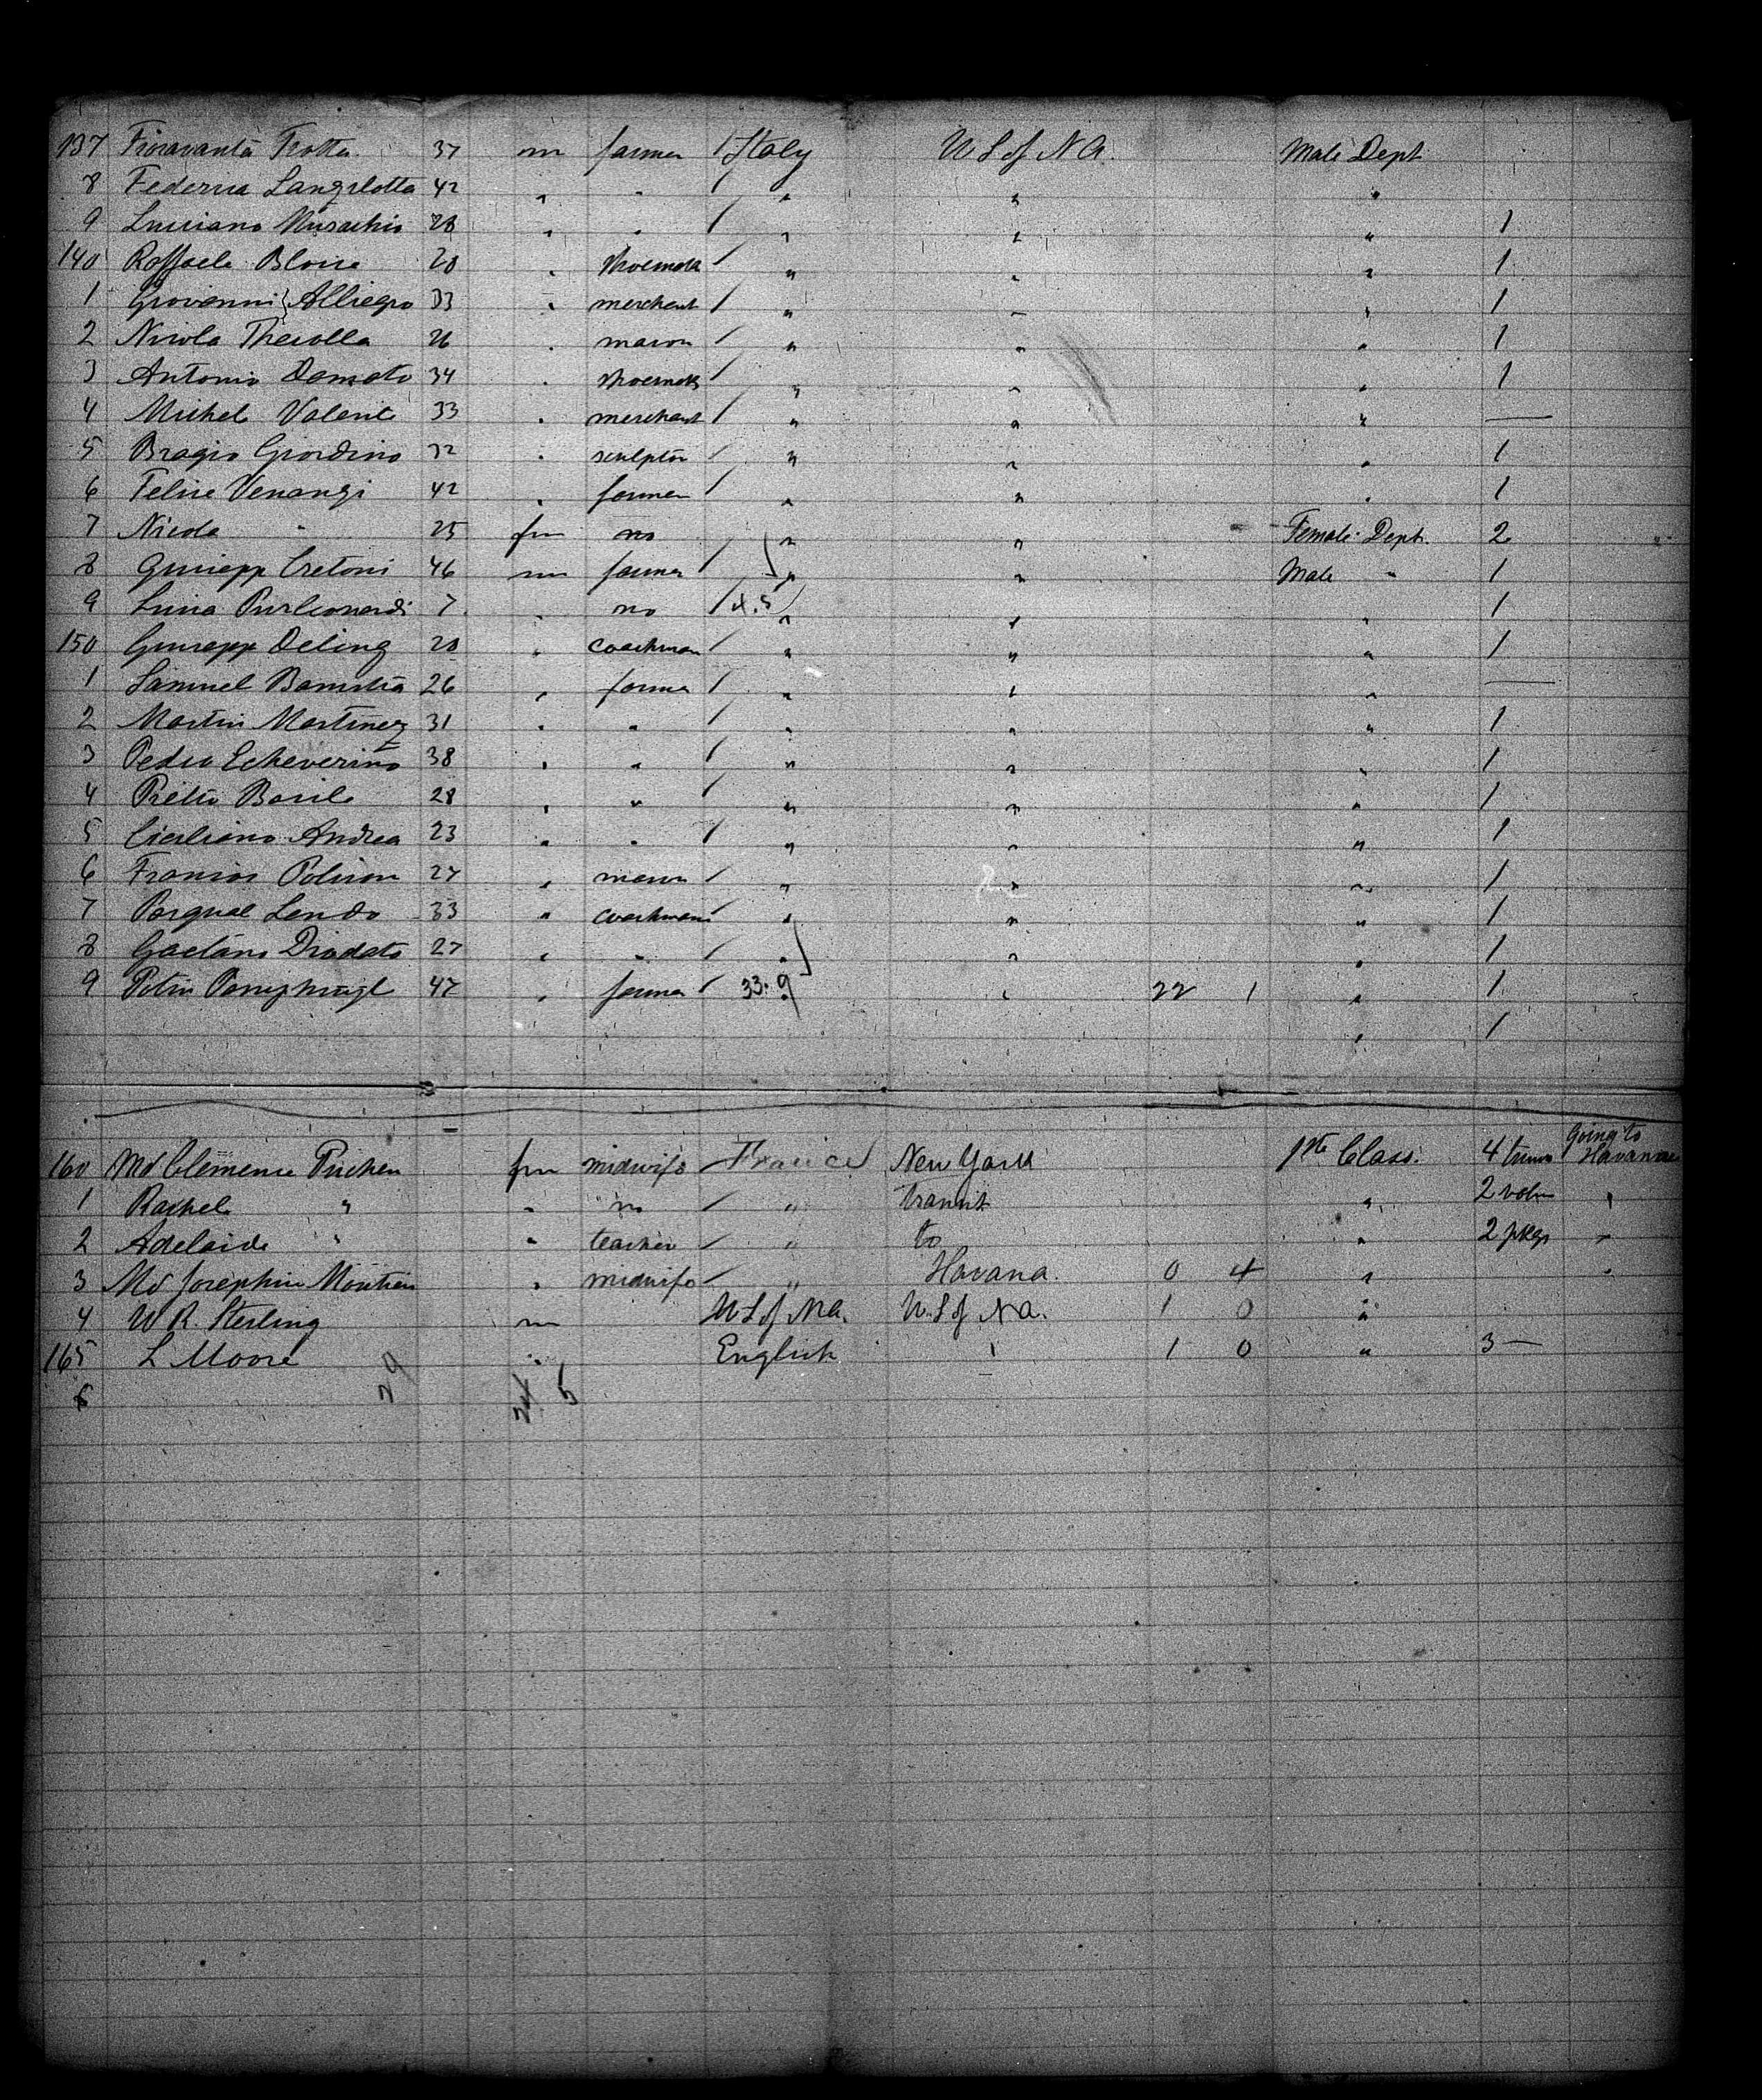 137 Fioravanta Trotta 37 m farmer / Italy U S of N A. Male Dept
8 Federica Langelotta 42 " " / " " "
9 Luciano Musachio 28 " " / " " " 1
140 Raffaele Bloise 20 " shoemak / " " " 1
1 Giovanni Alliegro 33 " merchant / " " " 1
2 Nicola 26 " mason / " " " 1
3 Antonio Damato 34 " shoemak / " " " 1
4 Michel Valente 33 " merchant / " " " —
5 Bragio Giordino 32 " sculptor / " " " 1
6 Felice Venangi 42 " farmer / " " " 1
7 Nicola " 25 fm no " " Female Dept. 2
8 Giusepp Cretoni 46 m farmer / " " Male " 1
9 Luca 7 " no / 4.5 " " " 1
150 Giusepp Deling 20 " coachman / " " " 1
1 Samuel 26 " farmer / " " " —
2 Martin Martinez 31 " " / " " " 1
3 Pedro Echeverino 38 " " / " " " 1
4 Pietro Basile 28 " " / " " " 1
5 Andrea 23 " " / " " " 1
6 27 " mason / " " " 1
7 Pasqual Lendo 33 " coachman / " " " 1
8 Gaetano Diodato 27 " " / " " " 1
9 47 " farmer / 33. 9 " 22 1 " 1
" 1
going to
160 Md Clemence Puchen fm midwife / France New York 1st Class. 4 trunks Havanna
1 Rachel " " no / " transit " 2 "
2 Adelaide " " teacher / " to " 2 pkgs "
3 Md Josephin " midwife / " Havana. 0 4 " "
4 W R. Sterling m U S of N A. U. S of N A. 1 0 "
165 L Moore " English " 1 0 " 3 —
6 29 24 5